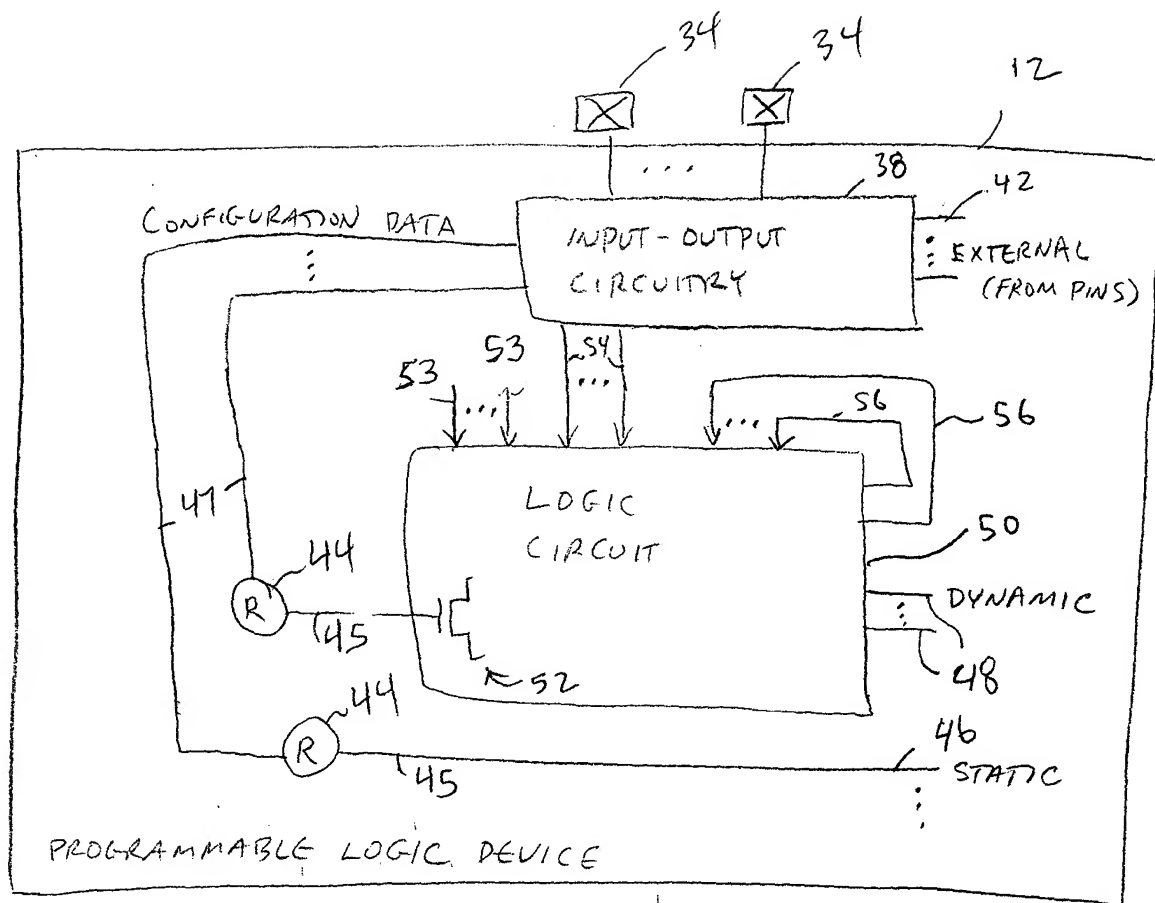 34
34
12
38
42
CONFIGURATION DATA
INPUT-OUTPUT
CIRCUITRY
EXTERNAL
(FROM PINS)
53
53
54
56
56
47
LOGIC
CIRCUIT
50
44
R
45
52
DYNAMIC
48
44
R
45
46
STATIC
PROGRAMMABLE LOGIC DEVICE